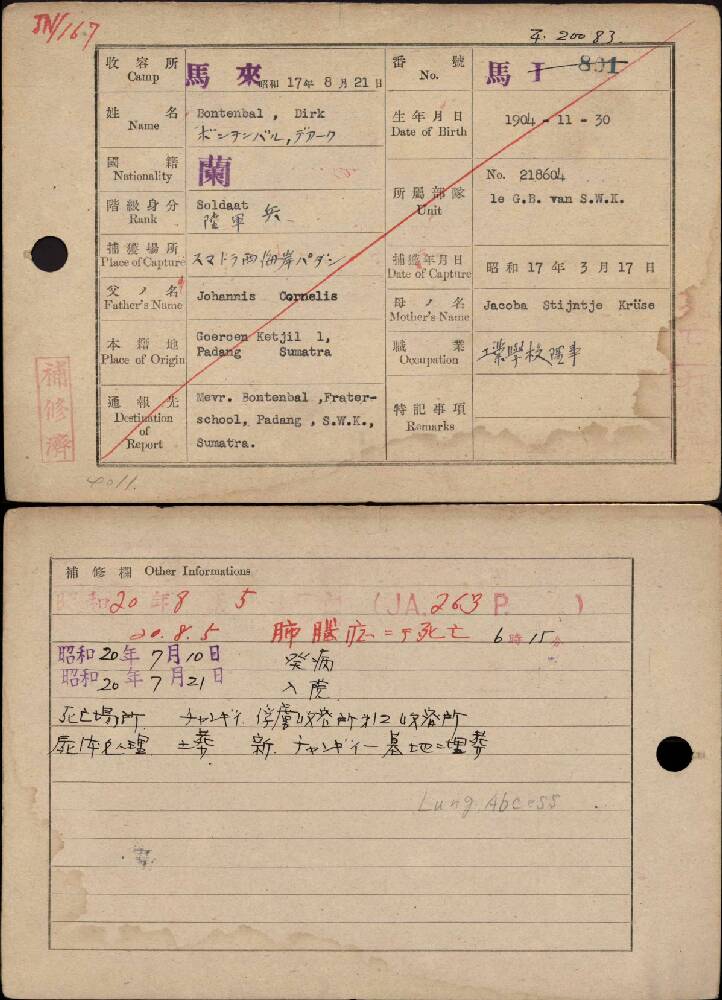 JN/167
収容所 Camp 馬來 昭和 17年 8月 21日
番號 No. 馬 I 801
姓名 Name Bontenbal , Dirk
ボンテンバル,デアーク
生年月日 Date of Birth 1904 - 11 - 30
國籍 Nationality 蘭
階級身分 Rank Soldaat
陸軍 兵
所屬部隊 Unit No. 218604
le G.B. van S.W.K.
捕獲場所 Place of Capture スマトラ西海岸パダン
捕獲年月日 Date of Capture 昭和 17 年 3 月 17 日
父ノ名 Father's Name Johannis Cornelis
母ノ名 Mother's Name Jacoba Stijntje Krüse
本籍地 Place of Origin Goeroen Ketjil 1,
Padang Sumatra
職業 Occupation 工業學校理事
通報先 Destination of Report Mevr. Bontenbal ,Frater-
school, Padang , S.W.K.,
Sumatra.
特記事項 Remarks
補修濟
4011.
補修欄 Other Informations
昭和20年8 5 (JA.263 P. )
20.8.5 肺臓
死亡 6時15分
昭和20年7月10日 発病
昭和20年7月21日 入院
死亡場所 チャンギー俘虜収容所第12収容所
屍体処理 土葬 新チャンギー墓地ニ埋葬
Lung Abcess